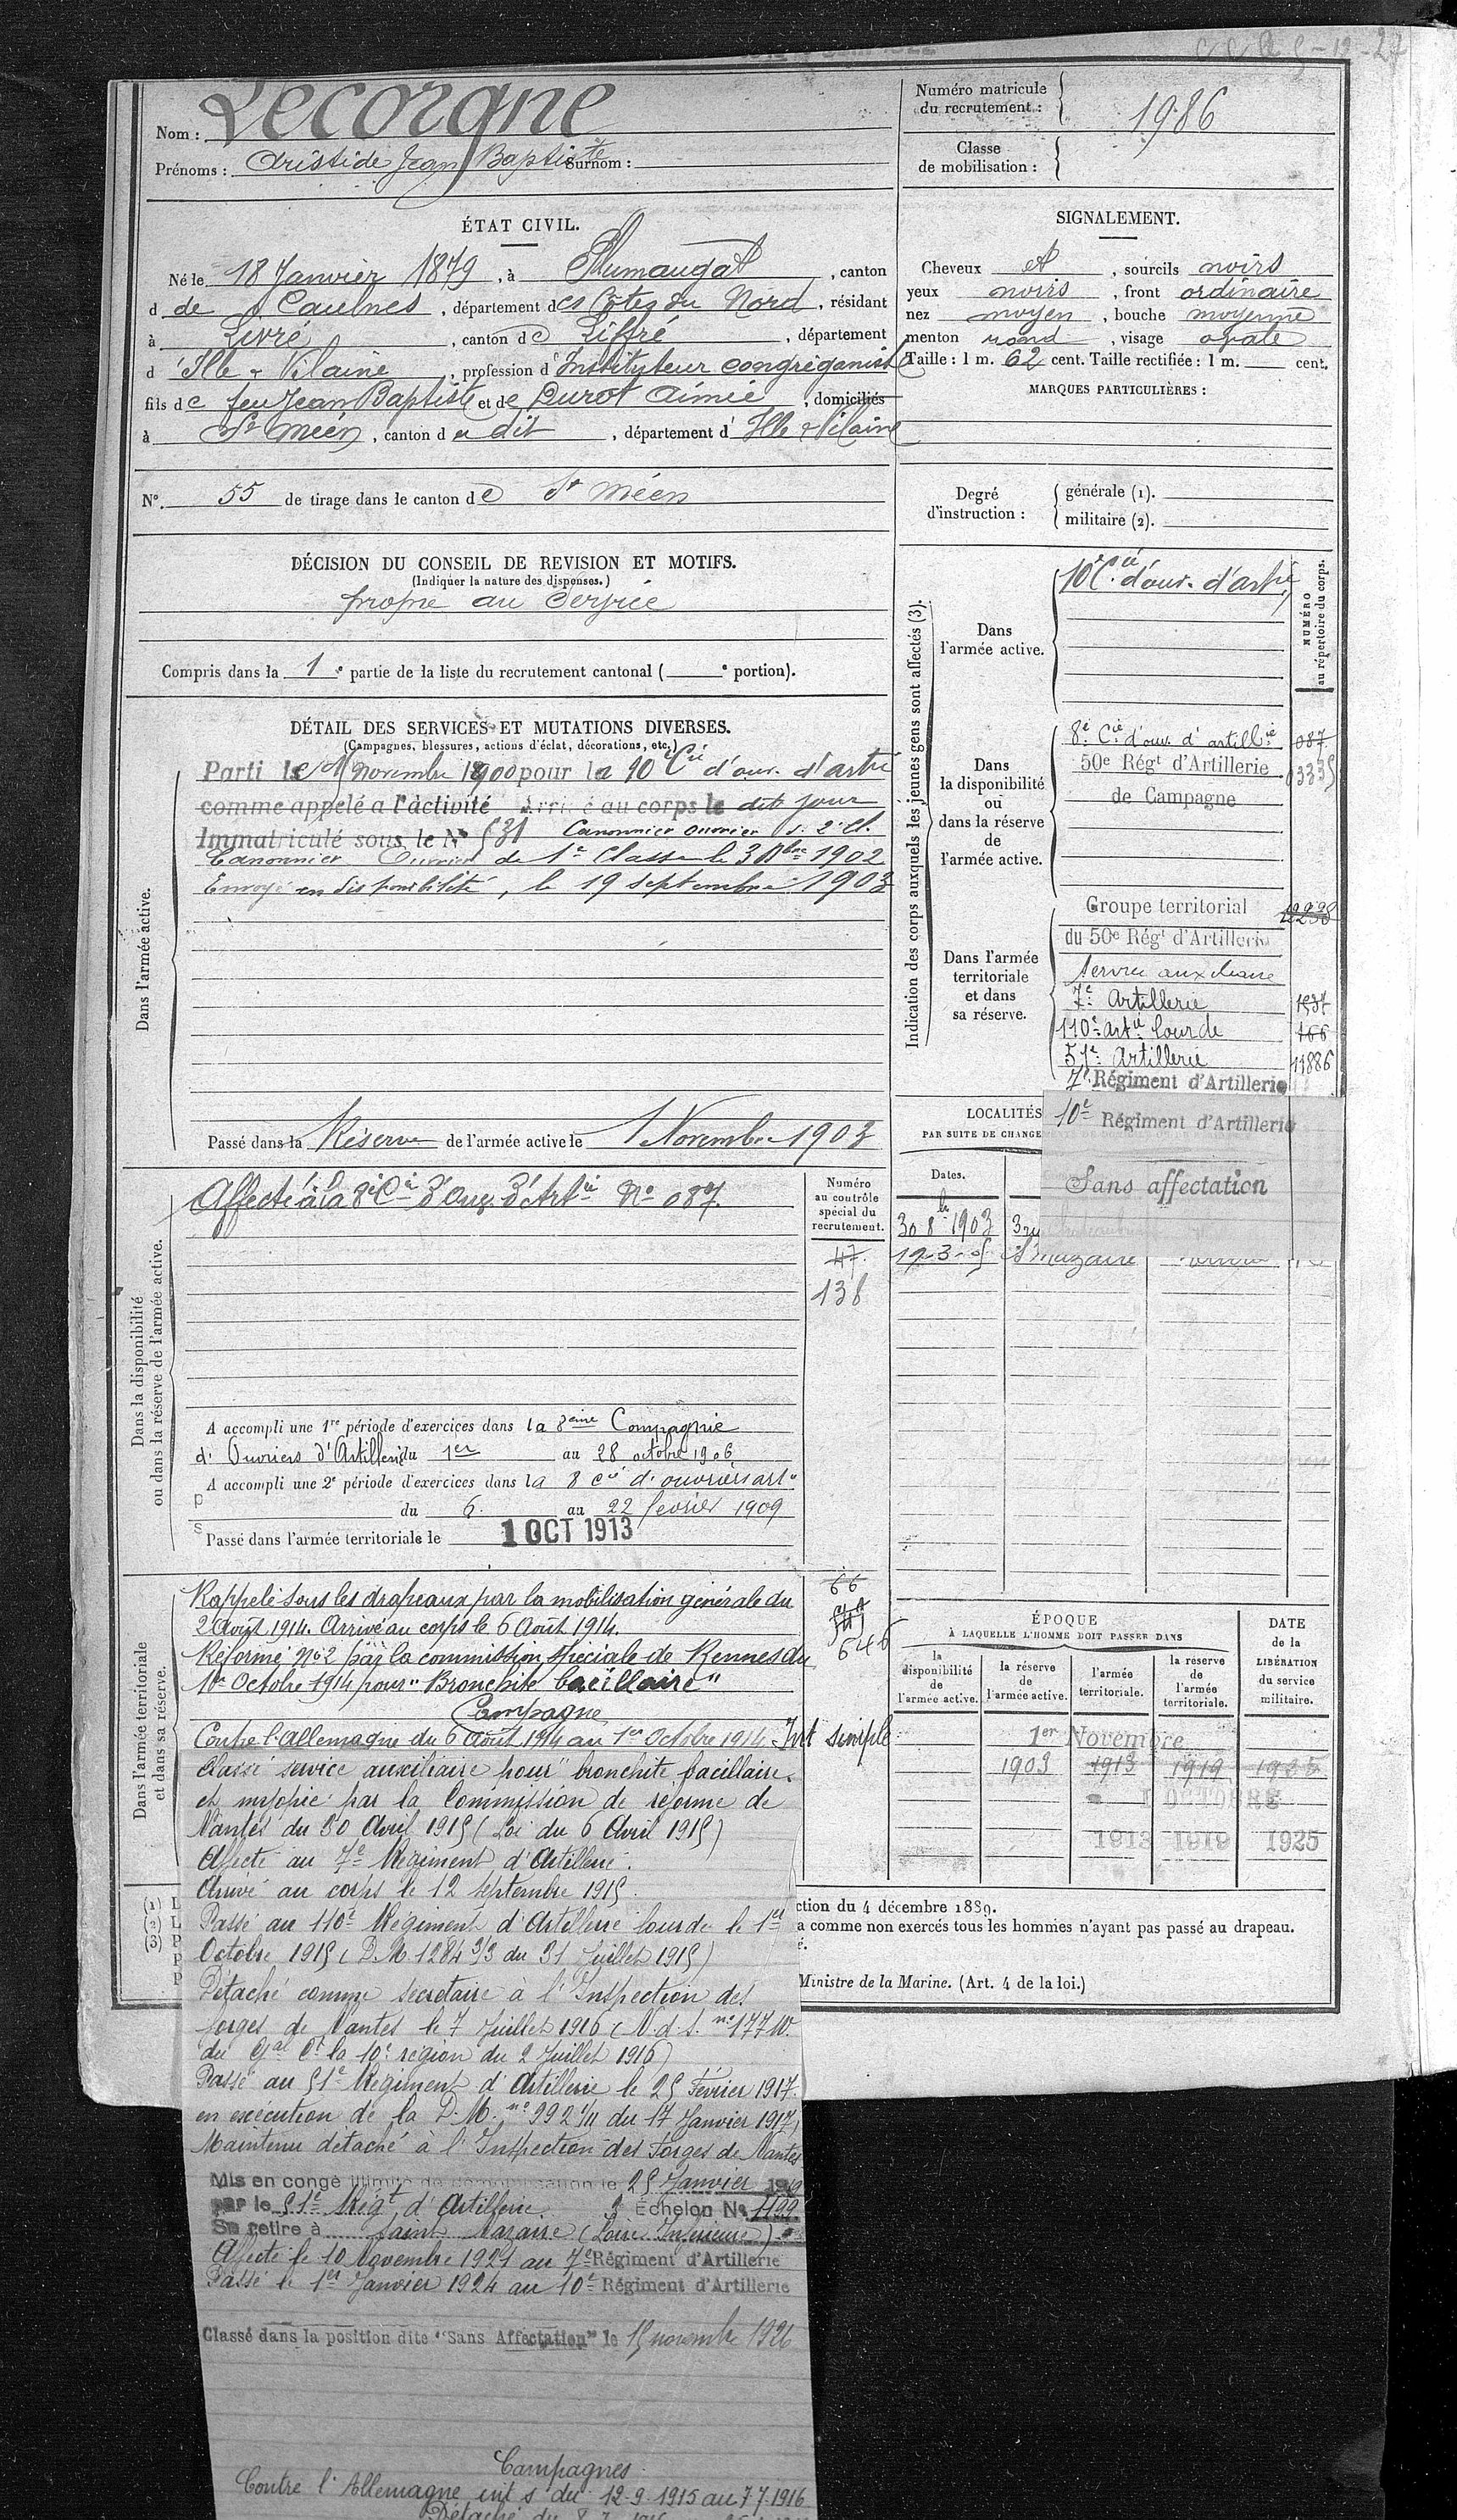 Nom : Lecorgne
Prénoms : Aristide Jean Baptiste Surnom :
Numéro matricule du recrutement : 1986
Classe de mobilisation :
ÉTAT CIVIL.
Né le 18 Janvier 1879, à Plumaugat, canton
d de Caulnes, département des Côtes du Nord, résidant
à Livré, canton de Liffré, département
d'Ille & Vilaine, profession d'Instituteur congréganiste
fils de feu Jean Baptiste et de Durot Aimée, domiciliés
à St Méen, canton d u dit, département d'Ille & Vilaine
N° 55 de tirage dans le canton de St Méen
DÉCISION DU CONSEIL DE REVISION ET MOTIFS.
(Indiquer la nature des dispenses.)
propre au Service
Compris dans la 1e partie de la liste du recrutement cantonal ( e portion).
SIGNALEMENT.
Cheveux et, sourcils noirs
yeux noirs, front ordinaire
nez moyen, bouche moyenne
menton rond, visage ovale
Taille : 1 m. 62 cent. Taille rectifiée : 1 m. cent.
MARQUES PARTICULIÈRES :
Degré d'instruction : générale (1).
militaire (2).
DÉTAIL DES SERVICES ET MUTATIONS DIVERSES.
(Campagnes, blessures, actions d'éclat, décorations, etc.)
Dans l'armée active.
Parti le novembre 1900 pour la 10e Cie d'ouv. d'artie
comme appelé a l'activité Arrivé au corps le dit jour
Immatriculé sous le N° 531 Canonnier ouvrier d. 2e cl.
Canonnier Ouvrier de 1e Classe le 3 Xbre 1902
Envoyé en disponibilité, le 19 septembre 1903
Passé dans la Réserve de l'armée active le 1 Novembre 1903
Indication des corps auxquels les jeunes gens sont affectés (3).
NUMÉRO au répertoire du corps.
Dans l'armée active.
10e Cie d'ouv. d'artie
Dans la disponibilité ou dans la réserve de l'armée active.
8e Cie d'ouv. d'artillie 087
50e Régt d'Artillerie 03335
de Campagne
Dans l'armée territoriale et dans sa réserve.
Groupe territorial
du 50e Régt d'Artillerie
Service auxiliaire
7e Artillerie
110e artie lourde 166
51e Artillerie 11886
7e Régiment d'Artillerie
10e Régiment d'Artillerie
Sans affectation
LOCALITÉS
PAR SUITE DE CHANGE
Dates.
30 8bre 1903
19-3-05 St Nazaire
Dans la disponibilité ou dans la réserve de l'armée active.
Affecté à la 8e Cie d'Ouv. d'Artie No 087.
Numéro au contrôle spécial du recrutement.
47.
138
A accompli une 1re période d'exercices dans la 8eme Compagnie
d'Ouvriers d'Artillerie du 1er au 28 octobre 1906
A accompli une 2e période d'exercices dans la 8 cie d'ouvriers artie
du 6 au 22 fevrier 1909
Passé dans l'armée territoriale le 1 OCT 1913
Dans l'armée territoriale et dans sa réserve.
66
646
Rappelé sous les drapeaux par la mobilisation générale du
2 Août 1914. Arrivé au corps le 6 Août 1914.
Réformé No 2 par la commission spéciale de Rennes du
1er Octobre 1914 pour "Bronchite bacillaire"
Campagne
Contre l'Allemagne du 6 août 1914 au 1er Octobre 1914 Int simple
Classé service auxiliaire pour "bronchite bacillaire
et myopie par la Commission de réforme de
Nantes du 30 Avril 1915 (Loi du 6 Avril 1915)
Affecté au 7e Régiment d'Artillerie.
Arrivé au corps le 12 septembre 1915.
Passé au 110e Régiment d'Artillerie lourde le 1er
Octobre 1915 (D.M. 1284 3/3 du 31 Juillet 1915)
Détaché comme secrétaire à l'Inspection des
forges de Nantes le 7 Juillet 1916 (N.d.S. no 177 W.
du Gal Ct la 10e région du 2 Juillet 1916)
Passé au 51e Régiment d'Artillerie le 25 Février 1917.
en exécution de la D.M. no 992 1/11 du 17 Janvier 1917,
Maintenu détaché à l'Inspection des forges de Nantes
Mis en congé illimité de démobilisation le 25 Janvier 1919
par le 51e Régt d'Artillerie. Échelon No 1199
Se retire à Saint Nazaire (Loire Inférieure)
Affecté le 10 Novembre 1921 au 7e Régiment d'Artillerie
Passé le 1er Janvier 1924 au 10e Régiment d'Artillerie
Classé dans la position dite "Sans Affectation" le 15 novembre 1926
Campagnes
Contre l'Allemagne int s du 12-9-1915 au 7.7.1916
ÉPOQUE
À LAQUELLE L'HOMME DOIT PASSER DANS
la disponibilité de l'armée active.
la réserve de l'armée active.
l'armée territoriale.
la réserve de l'armée territoriale.
DATE de la LIBÉRATION du service militaire.
1er Novembre
1903 1913 1919 1925
1 OCTOBRE
1913 1919 1925
(1) L
(2) L
(3)
ction du 4 décembre 1889.
a comme non exercés tous les hommes n'ayant pas passé au drapeau.
é.
Ministre de la Marine. (Art. 4 de la loi.)